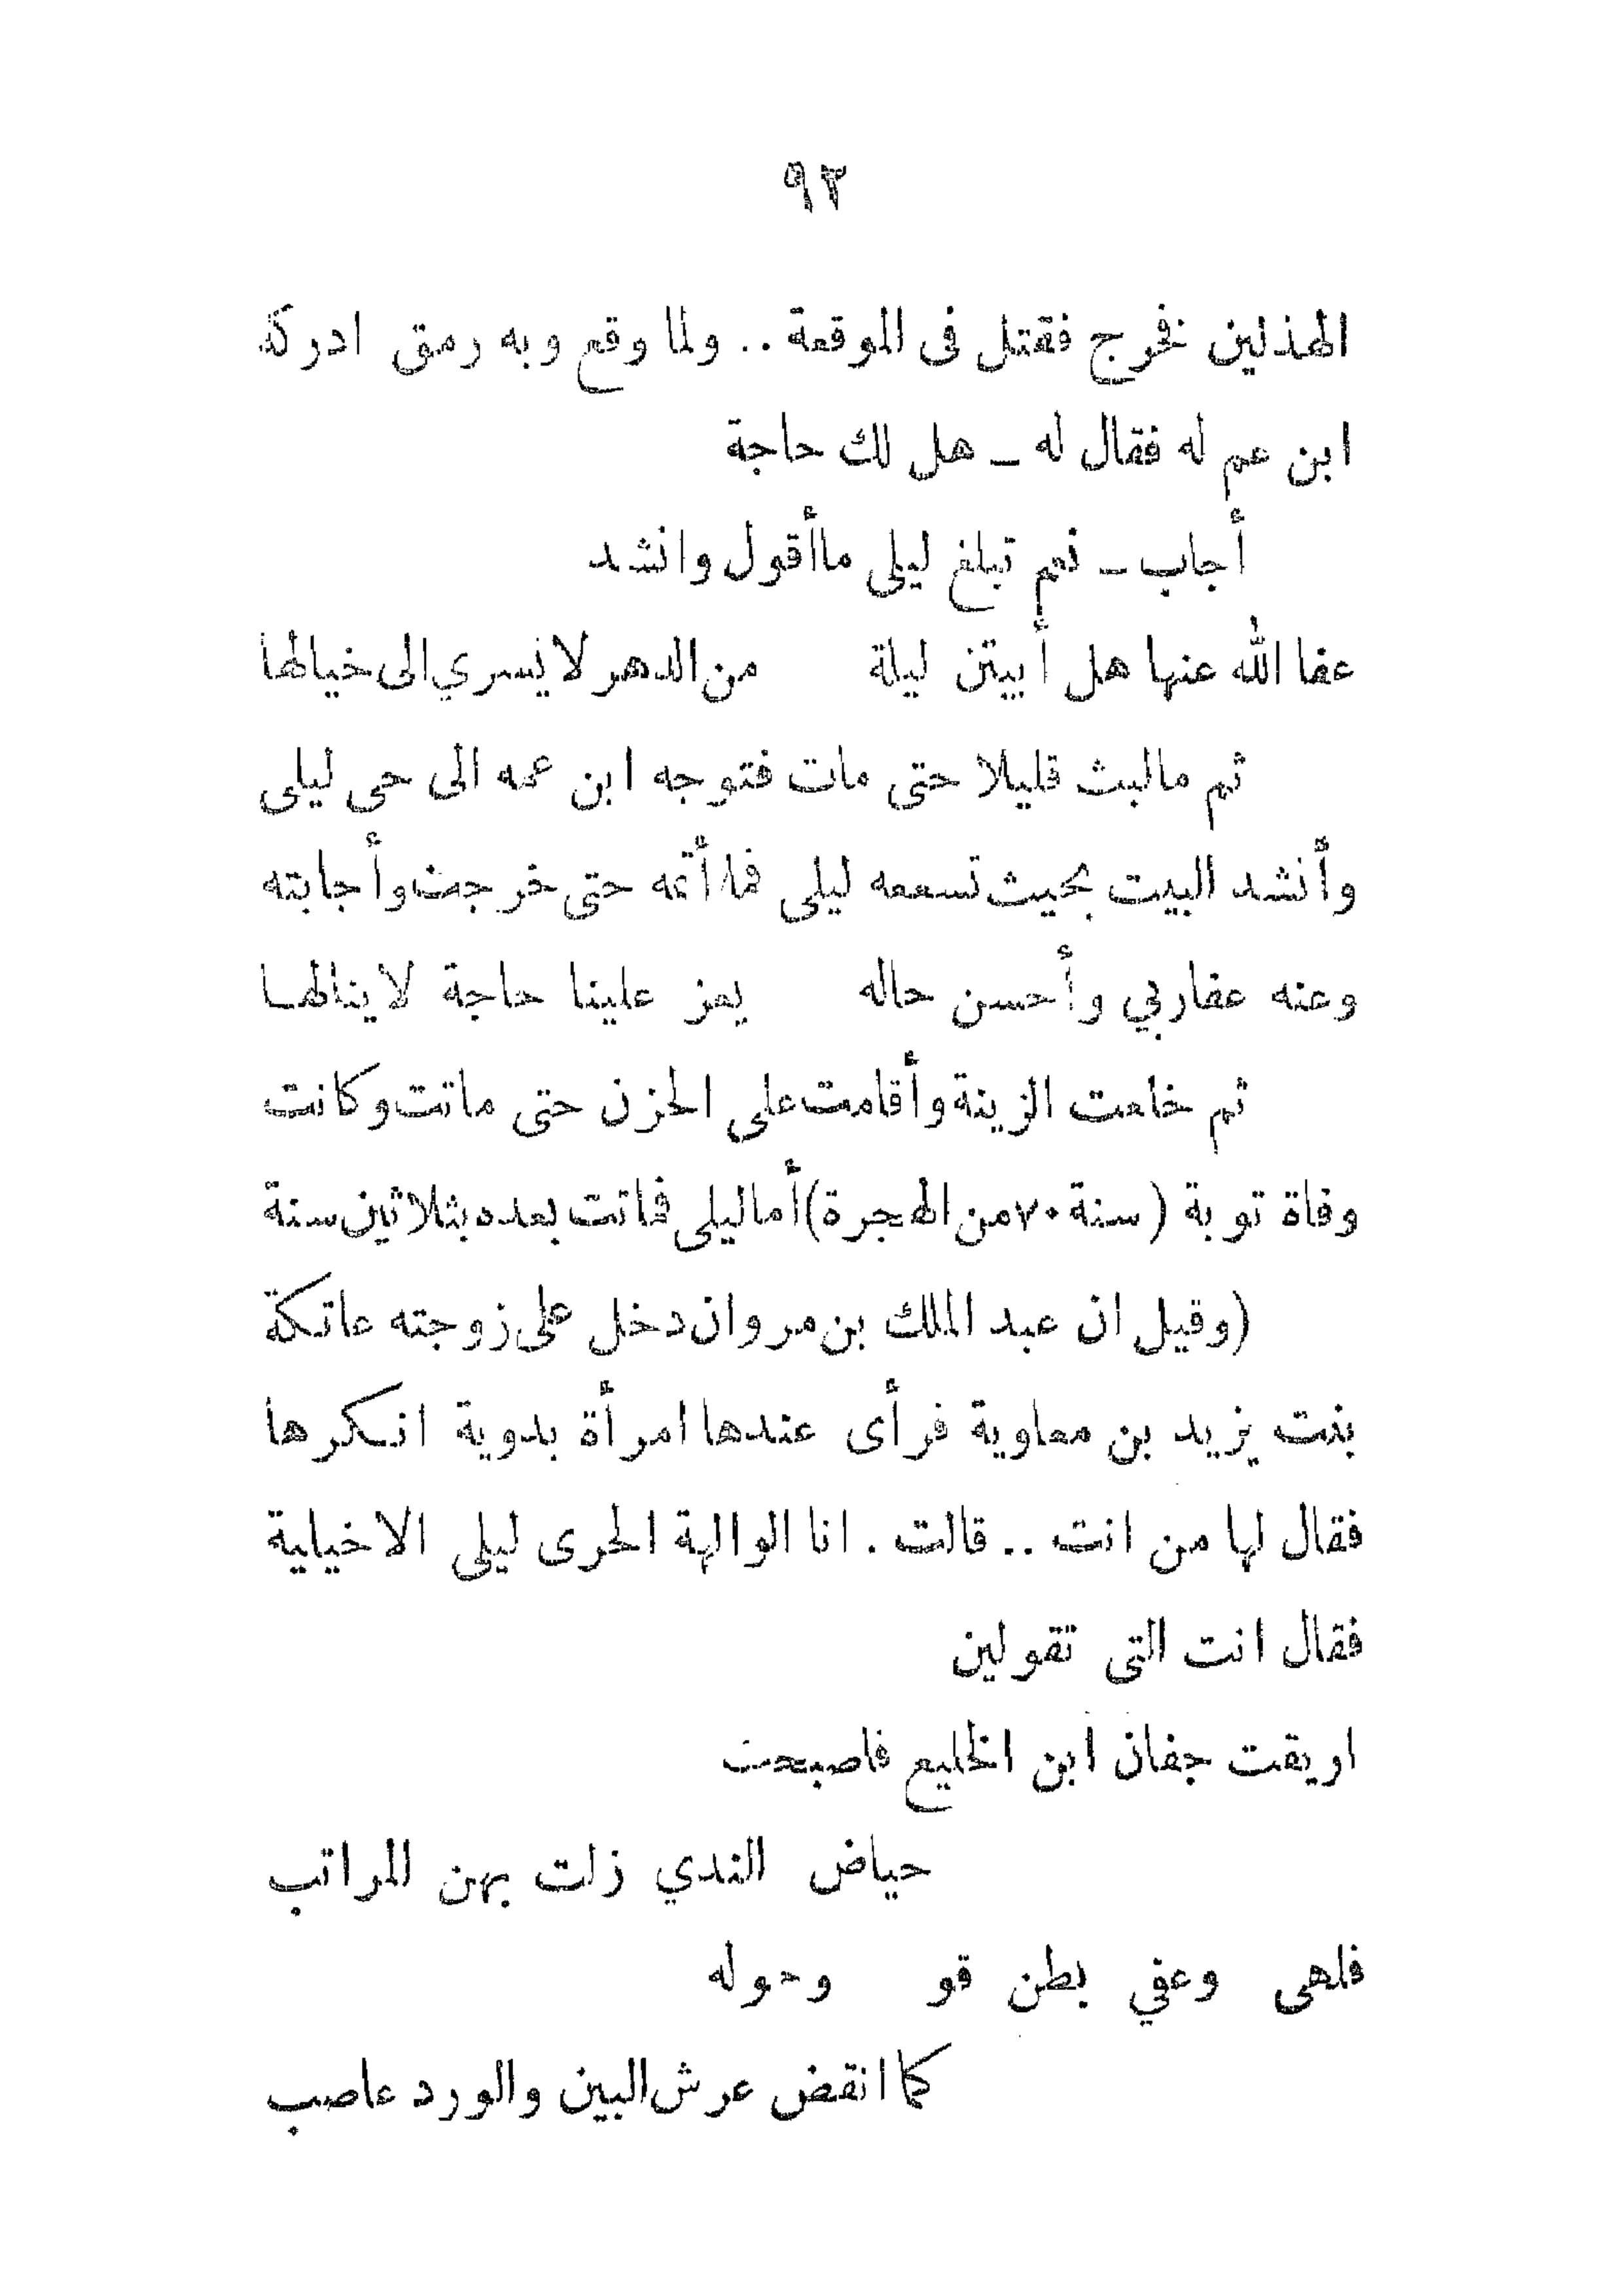 ٩٣
الهذلين فخرج فقتل فى الموقعة .. ولما وقع وبه رمق ادركه
ابن عم له فقال له ـ هل لك حاجة
أجاب ـ نعم تبلغ ليلى ماأقول وانشد
عفا الله عنها هل أبيتن ليلة من الدهر لا يسري الى خيالها
ثم مالبث قليلا حتى مات فتوجه ابن عمه الى حى ليلى
وأنشد البيت بحيث تسمعه ليلى فما أتمه حتى خرجت وأجابته
وعنه عفاربي وأحسن حاله يعز علينا حاجة لا ينالها
ثم خلعت الزينة وأقامت على الحزن حتى ماتت وكانت
وفاة توبة (سنة ٧٠ من الهجرة) أما ليلى فماتت بعده بثلاثين سنة
(وقيل ان عبد الملك بن مروان دخل على زوجته عاتكة
بنت يزيد بن معاوية فرأى عندها امرأة بدوية انكرها
فقال لها من انت .. قالت . انا الوالهة الحرى ليلى الاخيلية
فقال انت التى تقولين
اريقت جفان ابن الخليع فاصبحت
حياض الندي زلت بهن المراتب
فلهى وعفي بطن قو وحوله
كما انقض عرش البين والورد عاصب